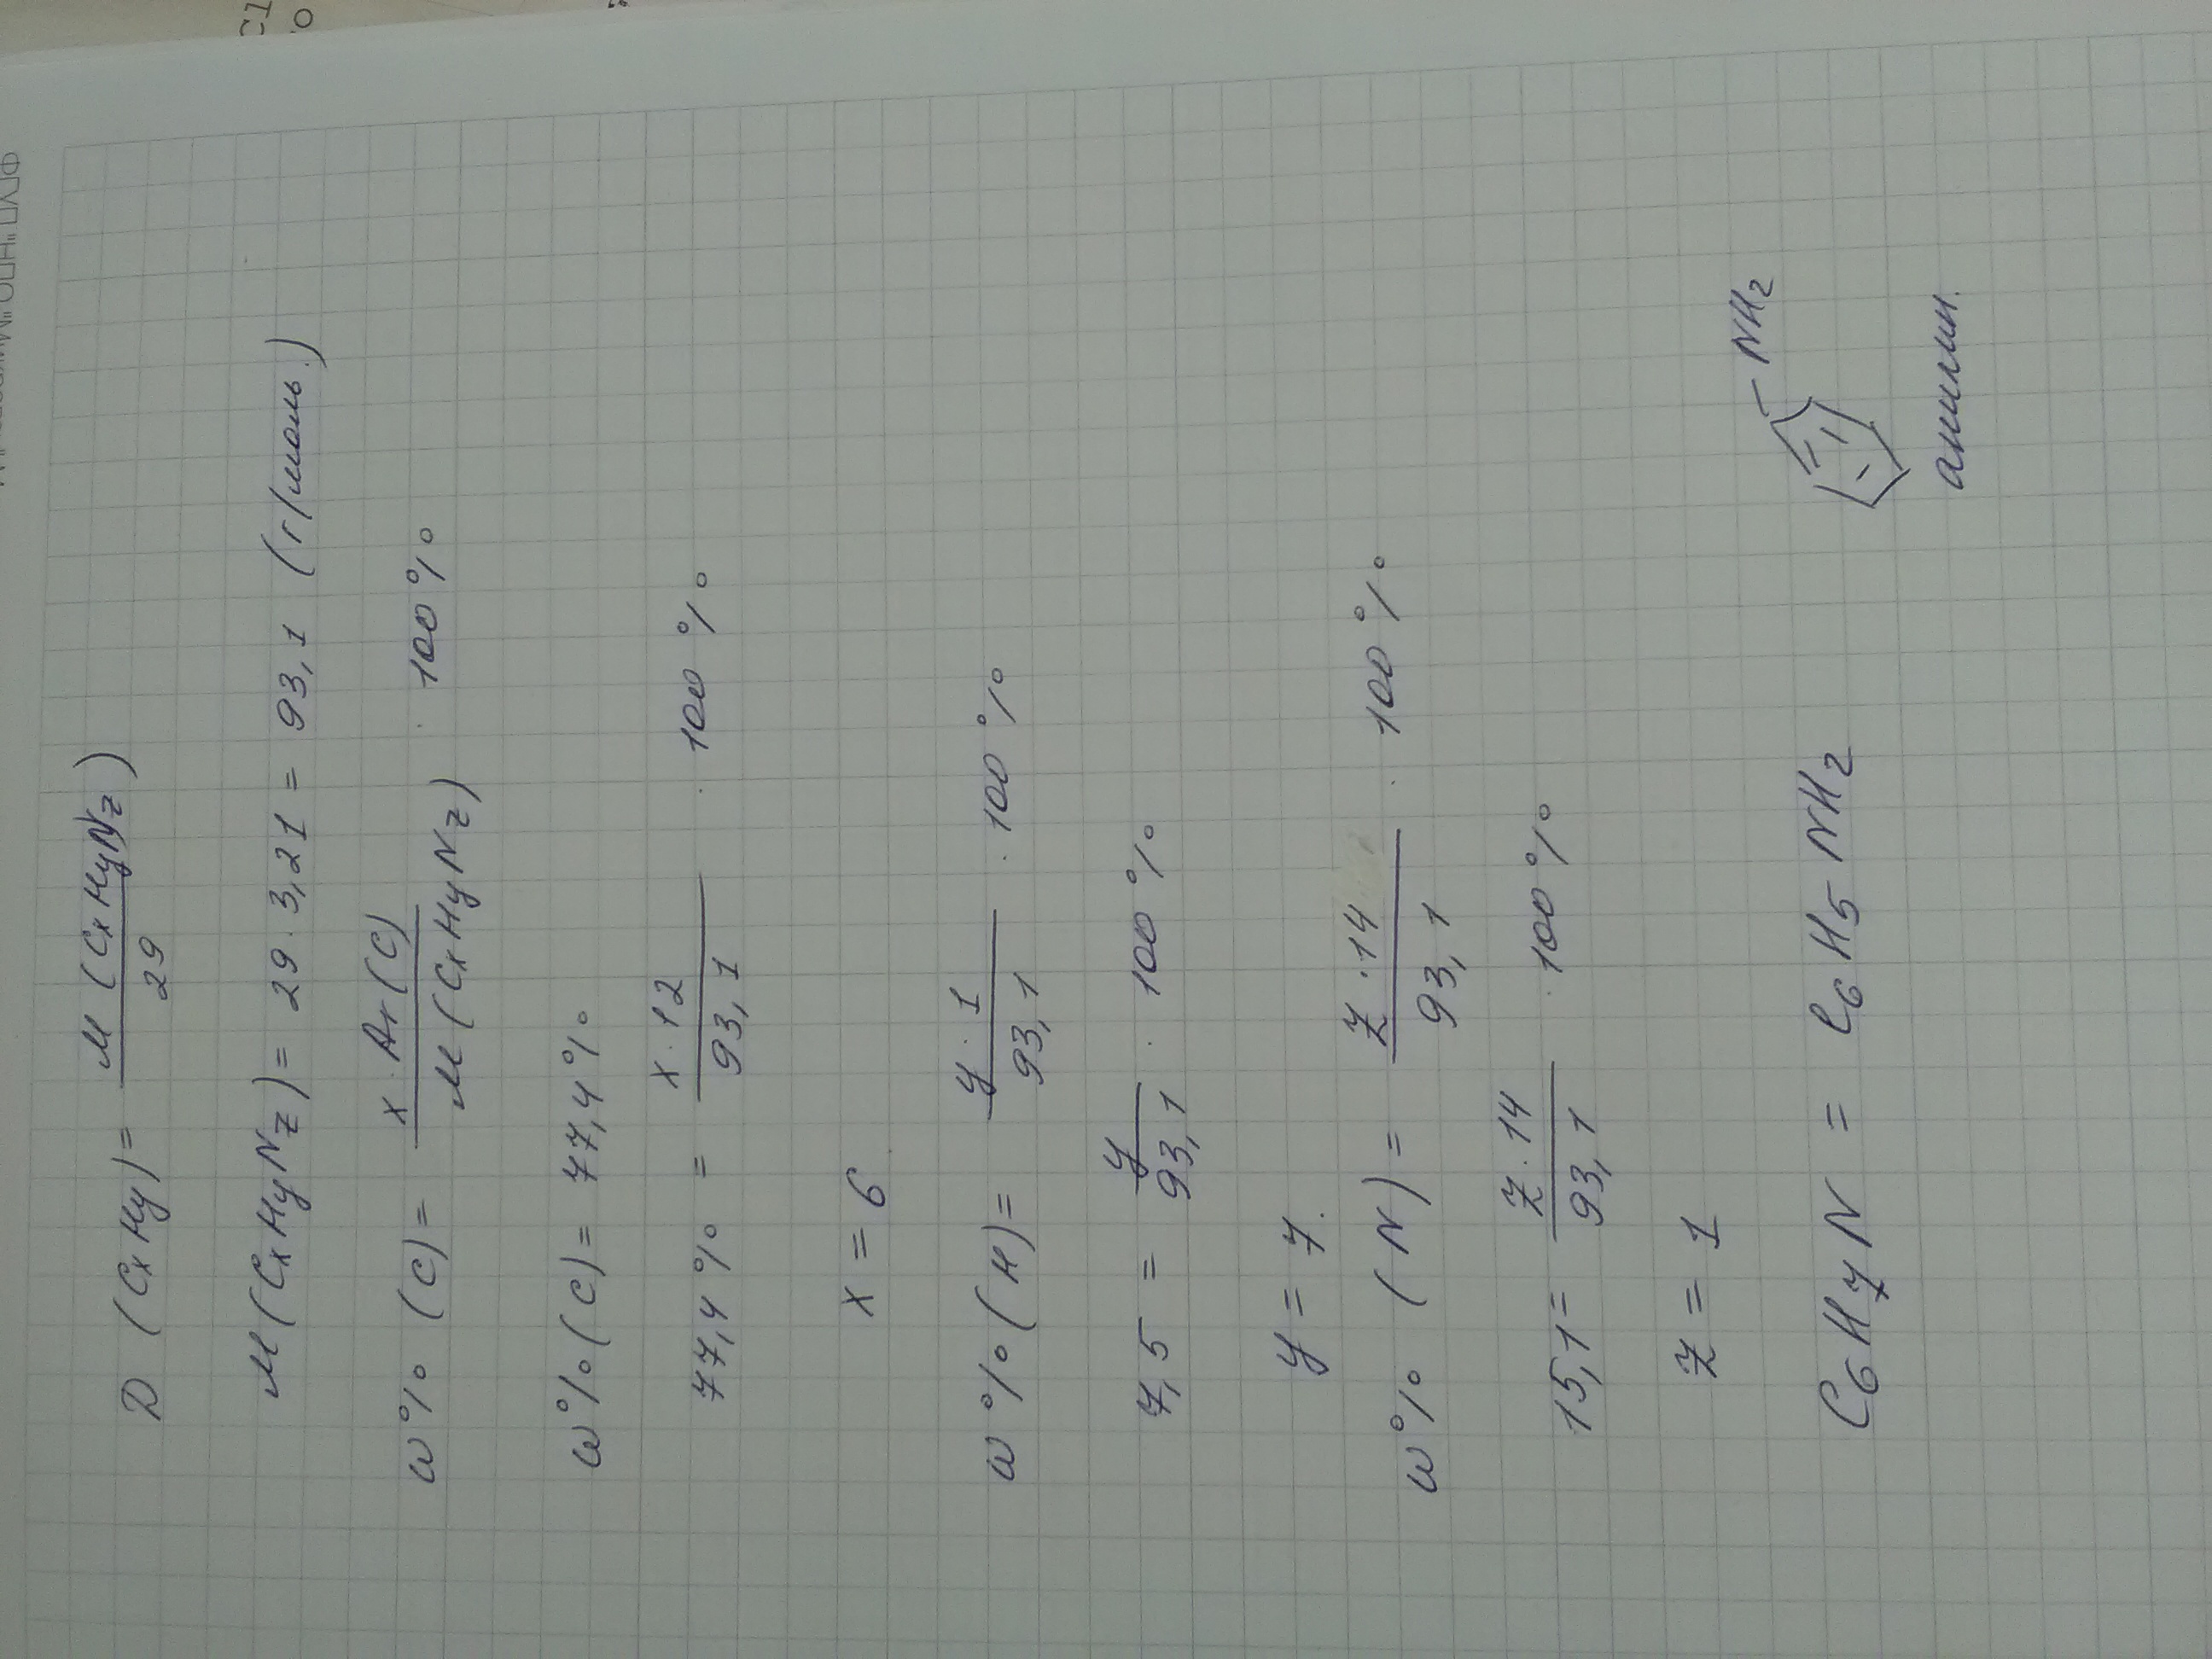 D (CxHy) = M (CxHyNz) / 29
M (CxHyNz) = 29 · 3,21 = 93,1 (г/моль)
w% (C) = x · Ar (C) / M (CxHyNz) · 100%
w% (C) = 77,4%
77,4% = x · 12 / 93,1 · 100%
x = 6
w% (H) = y · 1 / 93,1 · 100%
7,5 = y / 93,1 · 100%
y = 7.
w% (N) = z · 14 / 93,1 · 100%
15,1 = z · 14 / 93,1 · 100%
z = 1
C6H7N = C6H5NH2
NH2
анилин.